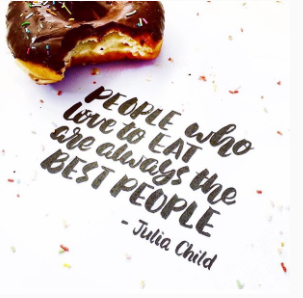 PEOPLE who
love to EAT
are always the
BEST PEOPLE
- Julia Child